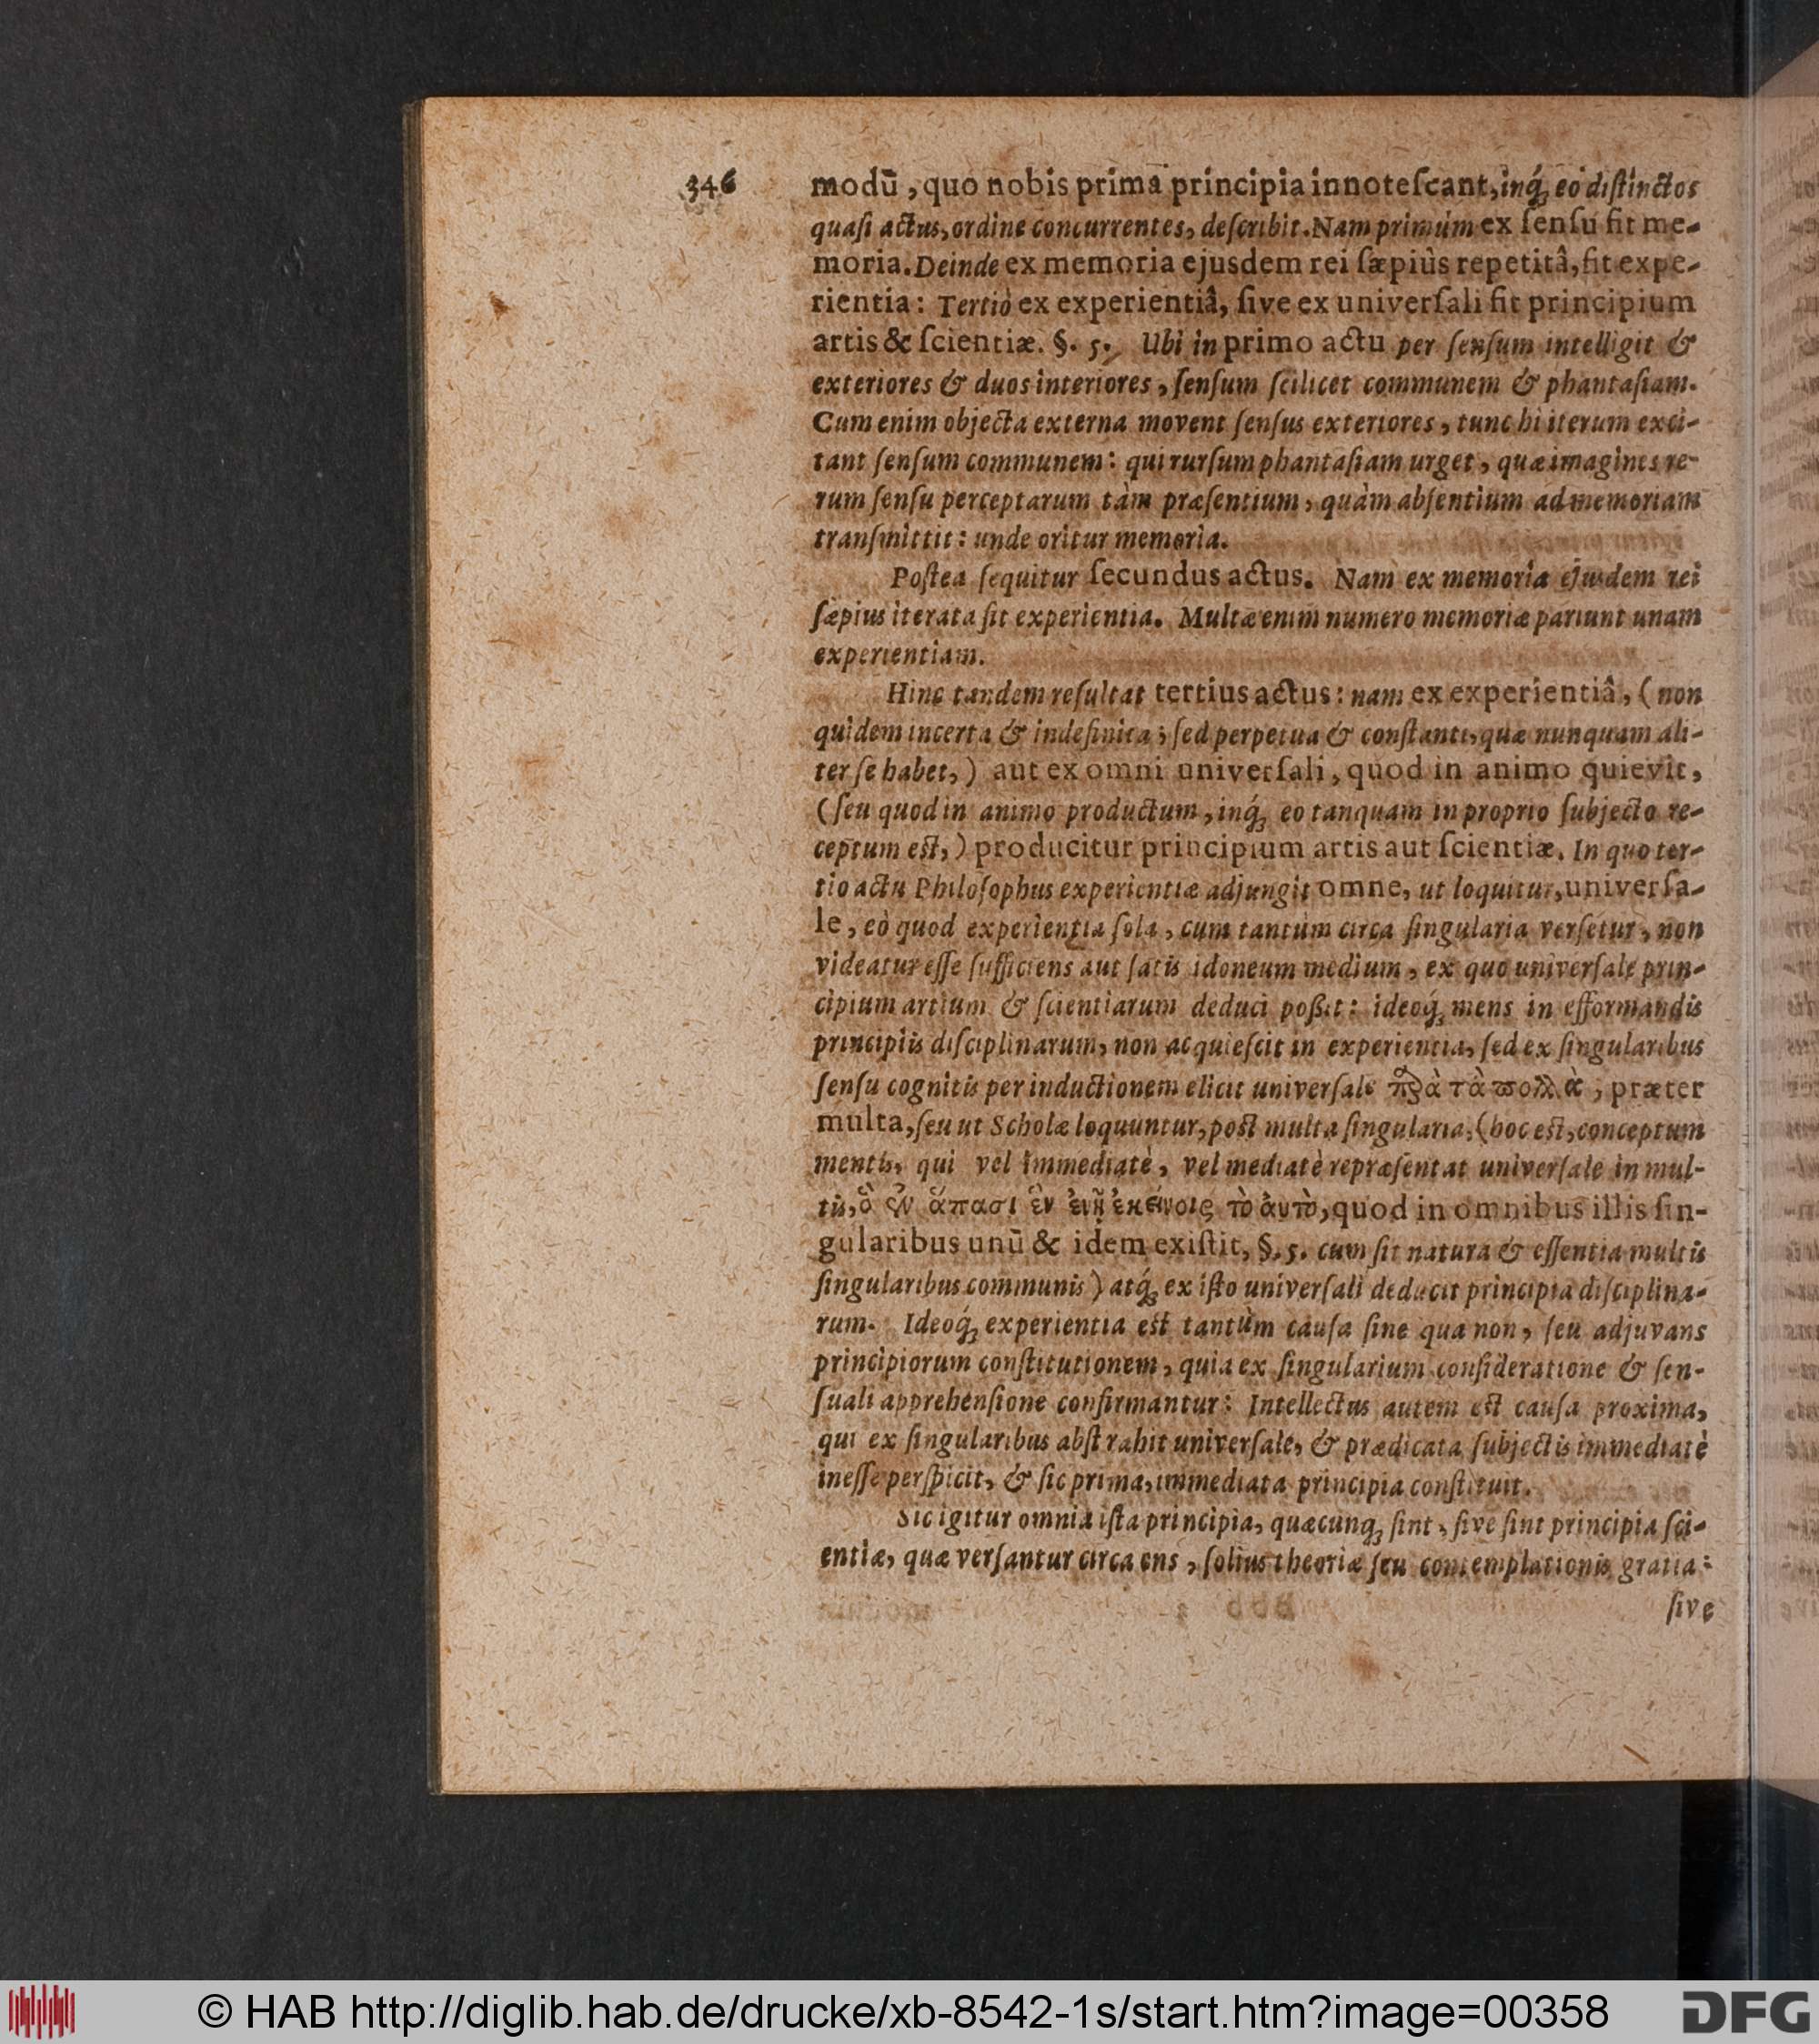 346
modū, quo nobis prima principia innoteſcant, inq́; eo diſtinctos
quaſi actus, ordine concurrentes, deſcribit. Nam primùm ex ſenſu fit me-
moria. Deinde ex memoria ejusdem rei ſæpiùs repetitâ, fit expe-
rientia: Tertiò ex experientiâ, ſive ex univerſali fit principium
artis & ſcientiæ. §. 5. Ubi in primo actu per ſenſum intelligit &
exteriores & duos interiores, ſenſum ſcilicet communem & phantaſiam.
Cum enim objecta externa movent ſenſus exteriores, tunc hi iterum exci-
tant ſenſum communem: qui rurſum phantaſiam urget, quæ imagines re-
rum ſenſu perceptarum tàm præſentium, quàm abſentium ad memoriam
tranſmittit: unde oritur memoria.
Poſtea ſequitur ſecundus actus. Nam ex memoria ejusdem rei
ſæpius iterata fit experientia. Multæ enim numero memoriæ pariunt unam
experientiam.
Hinc tandem reſultat tertius actus: nam ex experientiâ, (non
quidem incerta & indefinita; ſed perpetua & conſtanti, quæ nunquam ali-
ter ſe habet,) aut ex omni univerſali, quod in animo quievit,
(ſeu quod in animo productum, inq́; eo tanquam in proprio ſubjecto re-
ceptum eſt,) producitur principium artis aut ſcientiæ. In quo ter-
tio actu Philoſophus experientiæ adjungit omne, ut loquitur, univerſa-
le, eò quod experientia ſola, cum tantùm circa ſingularia verſetur, non
videatur eſſe ſufficiens aut ſatis idoneum medium, ex quo univerſale prin-
cipium artium & ſcientiarum deduci poßit: ideoq́; mens in efformandis
principiis diſciplinarum, non acquieſcit in experientia, ſed ex ſingularibus
ſenſu cognitis per inductionem elicit univerſale παρὰ τὰ πολλὰ, præter
multa, ſeu ut Scholæ loquuntur, poſt multa ſingularia, (hoc eſt, conceptum
mentis, qui vel immediatè, vel mediatè repræſentat univerſale in mul-
tis, ὃ ἐν ἅπασι ἓν ἐνῇ ἐκείνοις τὸ ἀυτὸ, quod in omnibus illis ſin-
gularibus unū & idem exiſtit, §. 5. cum ſit natura & eſſentia multis
ſingularibus communis) atq́; ex iſto univerſali deducit principia diſciplina-
rum. Ideoq́; experientia eſt tantùm cauſa ſine qua non, ſeu adjuvans
principiorum conſtitutionem, quia ex ſingularium conſideratione & ſen-
ſuali apprehenſione confirmantur: Intellectus autem eſt cauſa proxima,
qui ex ſingularibus abſtrahit univerſale, & prædicata ſubjectis immediatè
ineſſe perſpicit, & ſic prima, immediata principia conſtituit.
Sic igitur omnia iſta principia, quæcunq; ſint, ſive ſint principia ſci-
entiæ, quæ verſantur circa ens, ſolius theoriæ ſeu contemplationis gratia:
ſive
© HAB http://diglib.hab.de/drucke/xb-8542-1s/start.htm?image=00358
DFG